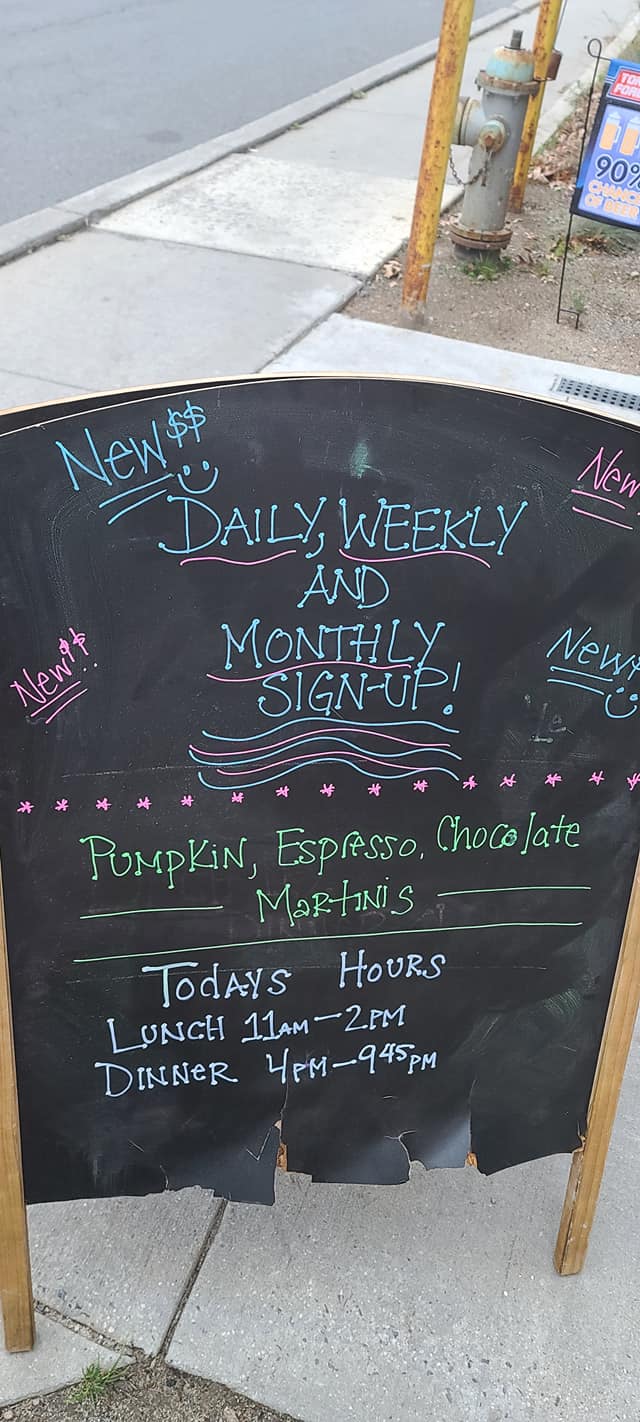 90%
CHANCE
OF BEER
New $$
New
DAILY, WEEKLY
AND
MONTHLY
SIGN-UP!
New $$
New
PUMPKIN, Espresso, Chocolate
MARTINIS
TODAYS HOURS
LUNCH 11AM-2PM
DINNER 4PM-945PM